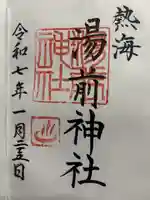 熱海
湯前神社
令和七年一月二五日
湯前
神社